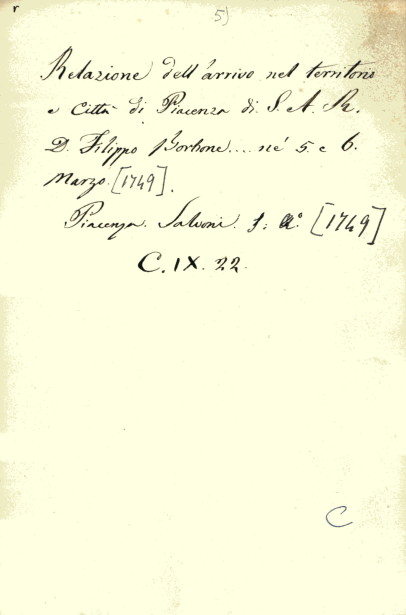 r
5)
Relazione dell'arrivo nel territorio
e Città di Piacenza di S. A. R.
D. Filippo Borbone.... né 5. e 6.
Marzo. [1749].
Piacenza. Salvoni. s: a.° [1749]
C. IX. 22.
C